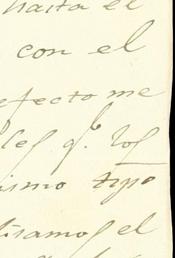 hasta el
con el
efecto me
les q.e los
ismo tipo
tisamos el